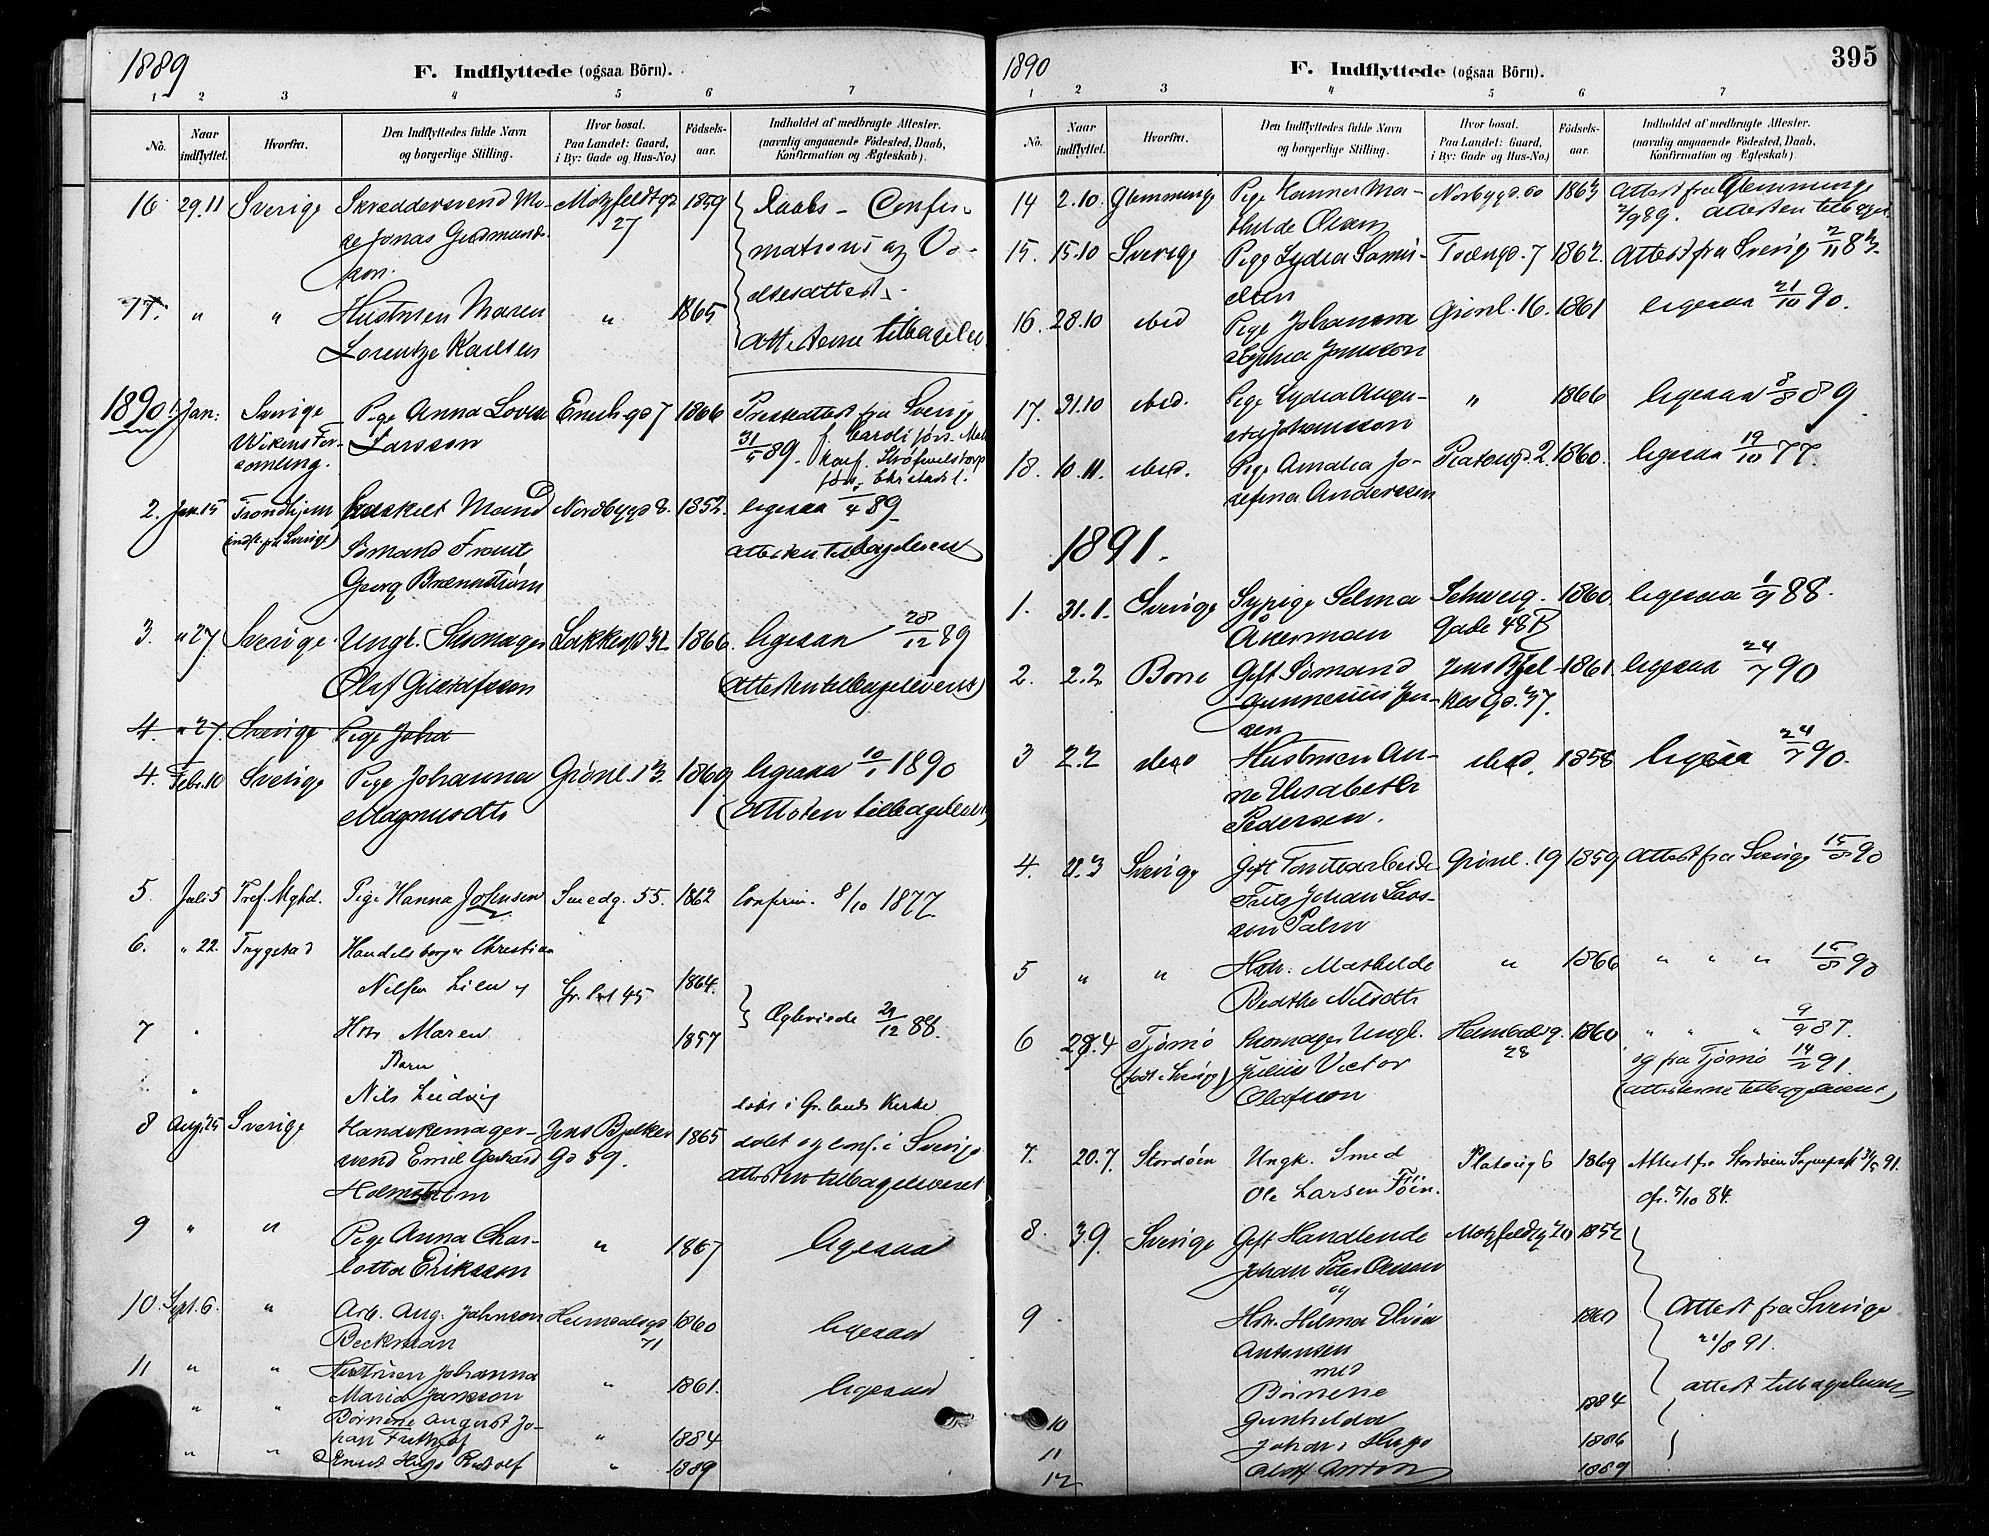 1889
F. Indflyttede (ogsaa Börn).
1 2 3 4 5 6 7
No.
Naar indflyttet.
Hvorfra.
Den Indflyttedes fulde Navn og borgerlige Stilling.
Hvor bosat. Paa Landet: Gaard, i By: Gade og Hus-No.)
Födsels-aar.
Indholdet af medbragte Attester. (navnlig angaaende Födested, Daab, Konfirmation og Ægteskab).
16 29.11 Sverige Skræddersvend Motzfeldtgd 1859 Daabs- Confir-
27 mations og
17. " " Hustruen Maren " 1865
Lorentze Karlsen Attesterne
1890 1 Jan: Sverige Pige Anna Lovisa 7 1866 Presteattest fra Sverige
Larsson 31/5 89.
samling.
2. Jan.15 Trondhjem Mand Nordbygd 8. 1852. ligesaa 1/4 89
Sømand Frant
Georg Brennstrøm
3. " 27 Sverige Ungk. Skomager Lakkegd 32 1866. ligesaa 28/12 89
Olaf Gustafsson (Attesten tilbageleveret)
4. " 27. Sverige Pige Joha
4. Febr.10 Sverige Pige Johanna Grønl. 13 1869 ligesaa 10/1 1890
Magnusdtr (Attesten tilbageleveret)
5. Juli 5 Tref. Mghd. Pige Hanna Johnsen Smedg. 55. 1862 Confirm. 8/10 1877
6. " 22. Trygstad Handelsborger Christian
Nilsen Lien og 45 1864.
Ægteviede 29/12 88.
7 " Hstr Maren 1857
Barn
" Nils Ludvig
døbt i Gr.lands Kirke
8 Aug.25 Sverige Handskemager- Jens Bjelkes 1865 døbt og conf. i Sverige
svend Emil Gerhard Gd 59. Attesten tilbageleveret
Holmstrøm
9 " " Pige Anna Char- " 1867 ligesaa
lotta Eriksson
10. Sept. 6. " Arb. Aug. Johnson Heimdalsgd 1860 ligesaa
Beckman 71
11 " " Hustruen Johanna " 1861. ligesaa
Maria Jansson
" " Børnene August Jo-
han Frithjof " 1884
" " Knut Hugo Rudolf " 1889
1890
F. Indflyttede (ogsaa Börn).
395
1 2 3 4 5 6 7
No.
Naar indflyttet.
Hvorfra.
Den Indflyttedes fulde Navn og borgerlige Stilling.
Hvor bosat. Paa Landet: Gaard, i By: Gade og Hus-No.)
Födsels-aar.
Indholdet af medbragte Attester. (navnlig angaaende Födested, Daab, Konfirmation og Ægteskab).
14 2.10. Glemminge Pige Hanna Ma- Norbygd 60 1863 Attest fra Glemminge
thilde Olsen 2/9 89. Attesten
15. 15.10 Sverige Pige Lydia Samu- 7 1862. Attest fra Sverige 2/11 83.
elsen
16. 28.10 ibid Pige Johanna Grønl. 16. 1861 ligesaa 21/10 90.
Sophia Jonsson
17. 31.10 ibid. Pige Lydia Augu- " 1866 ligesaa 8/3 89
sta Johansson
18. 10.11. ibid. Pige Amalia Jo- Platougd. 2. 1860. ligesaa 19/10 77.
sefina Anderssen
1891.
1. 31.1. Sverige Sypige Selma Schweig. 1860. ligesaa 1/9 88.
Åkerman gade 48B
2. 2.2 Borre Gift Sømand Jens Bjel- 1861. ligesaa 24/7 90
Gunnerius Jen- kes Gd. 37.
sen
3 2.2 ibid Hustruen An- ibid. 1858 ligesaa 24/7 90.
ne Elisabeth
Pedersen.
4. 11.3 Sverige Gift Grønl. 19 1859 Attest fra Sverige 15/8 90
Frits Johan Lars-
son Palm
5 " " Hstr. Mathilde " 1866 " " " 15/8 90
Beathe Nilsdtr
6 28.4 Tjømø Skomager Ungk. Heimdalsg. 1860 " " " 9/9 87.
(født i Sverige) Julius Victor 28 og fra Tjømø 14/2 91.
Olafsson (attesterne tilbageleveret)
7. 20.7. Stordøen Ungk. Smed Platoug 6 1869 Attest fra Stordøen
Ole Larsen Tøen. 84.
8. 3.9. Sverige Gift Handlende Motzfeldtg 20 1852
Johan Peter Olsson
og
9 Hstr. Hilma Elvira 1860 Attest fra Sverige
Antonsen 21/8 91.
med
Børnene attest tilbageleveret
10 Gunhilda 1884
11 Johan Hugo 1886
12 Olof Anton 1889